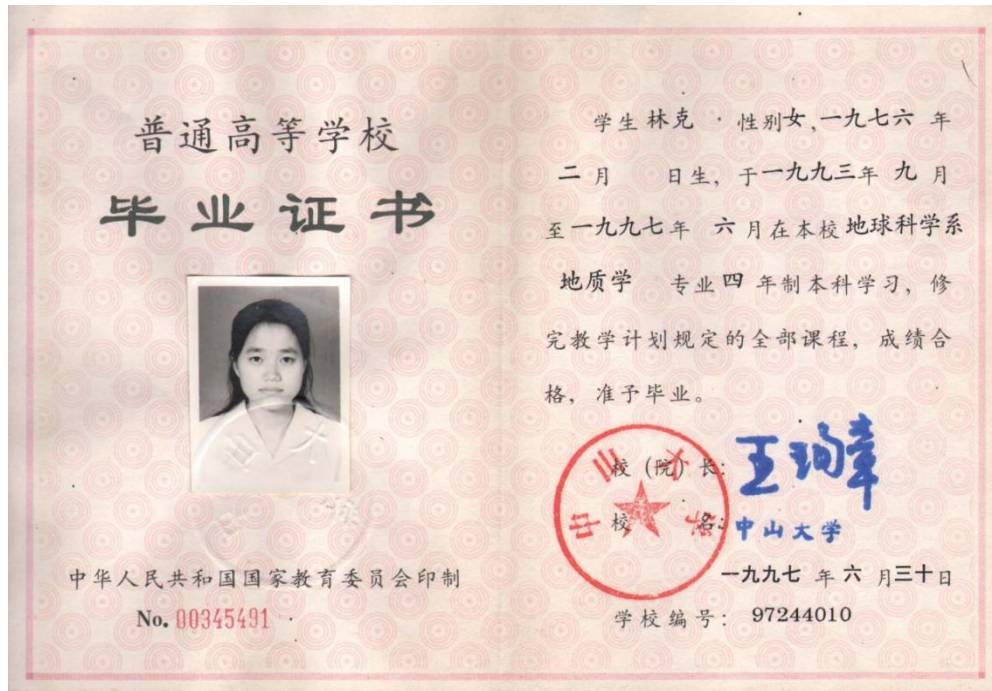 普通高等学校
毕业证书
中华人民共和国国家教育委员会印制
No. 00345491
学生 林克 性别女，一九七六 年
二 月 日生，于一九九三年 九 月
至一九九七年 六 月在本校 地球科学系
地质学 专业四 年制本科学习，修
完教学计划规定的全部课程，成绩合
格，准予毕业。
校（院）长：王珣章
校 名：中山大学
中山大学
一九九七 年 六 月三十日
学校编号：97244010